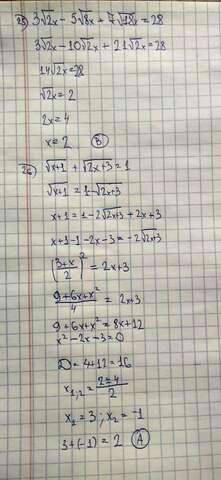 25) 3√2x - 5√8x + 7√18x = 28
3√2x - 10√2x + 21√2x = 28
14√2x = 28
√2x = 2
2x = 4
x = 2 (B)
26) √x+1 + √2x+3 = 1
√x+1 = 1 - √2x+3
x+1 = 1 - 2√2x+3 + 2x + 3
x+1-1-2x-3 = -2√2x+3
(3+x/2)² = 2x+3
9+6x+x²/4 = 2x+3
9+6x+x² = 8x+12
x² - 2x - 3 = 0
D = 4+12 = 16
x₁,₂ = 2±4/2
x₁ = 3 ; x₂ = -1
3+(-1) = 2 (A)